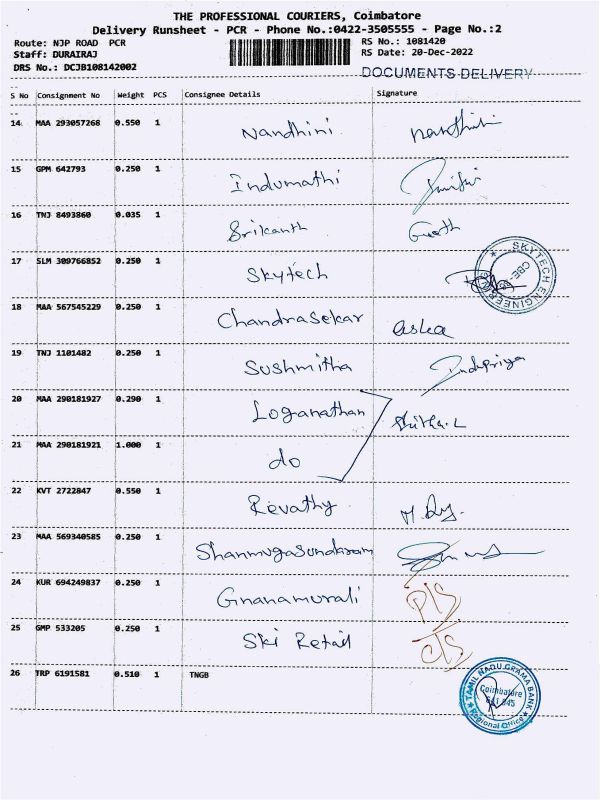 THE PROFESSIONAL COURIERS, Coimbatore
Delivery Runsheet - PCR - Phone No.:0422-3505555 - Page No.:2
Route: NJP ROAD PCR RS No.: 1081420
Staff: DURAIRAJ RS Date: 20-Dec-2022
DRS No.: DCJB108142002 DOCUMENTS DELIVERY
S No Consignment No Weight PCS Consignee Details Signature
14 MAA 293057268 0.550 1 Nandhini Nandhini
15 GPM 642793 0.250 1 Indumathi
16 TNJ 8493860 0.035 1 Srikanth
17 SLM 309766852 0.250 1 Skytech SKYTECH ENGINEERS CBE
18 MAA 567545229 0.250 1 Chandrasekar
19 TNJ 1101482 0.250 1 Sushmitha Indupriya
20 MAA 290181927 0.290 1 Loganathan
21 MAA 290181921 1.000 1 do
22 KVT 2722847 0.550 1 Revathy
23 MAA 569340585 0.250 1 Shanmugasundaram
24 KUR 694249837 0.250 1 Gnanamurali P/S
25 GMP 533205 0.250 1 Ski Retail C/S
26 TRP 6191581 0.510 1 TNGB TAMIL NADU GRAMA BANK Coimbatore 641 045 Regional Office